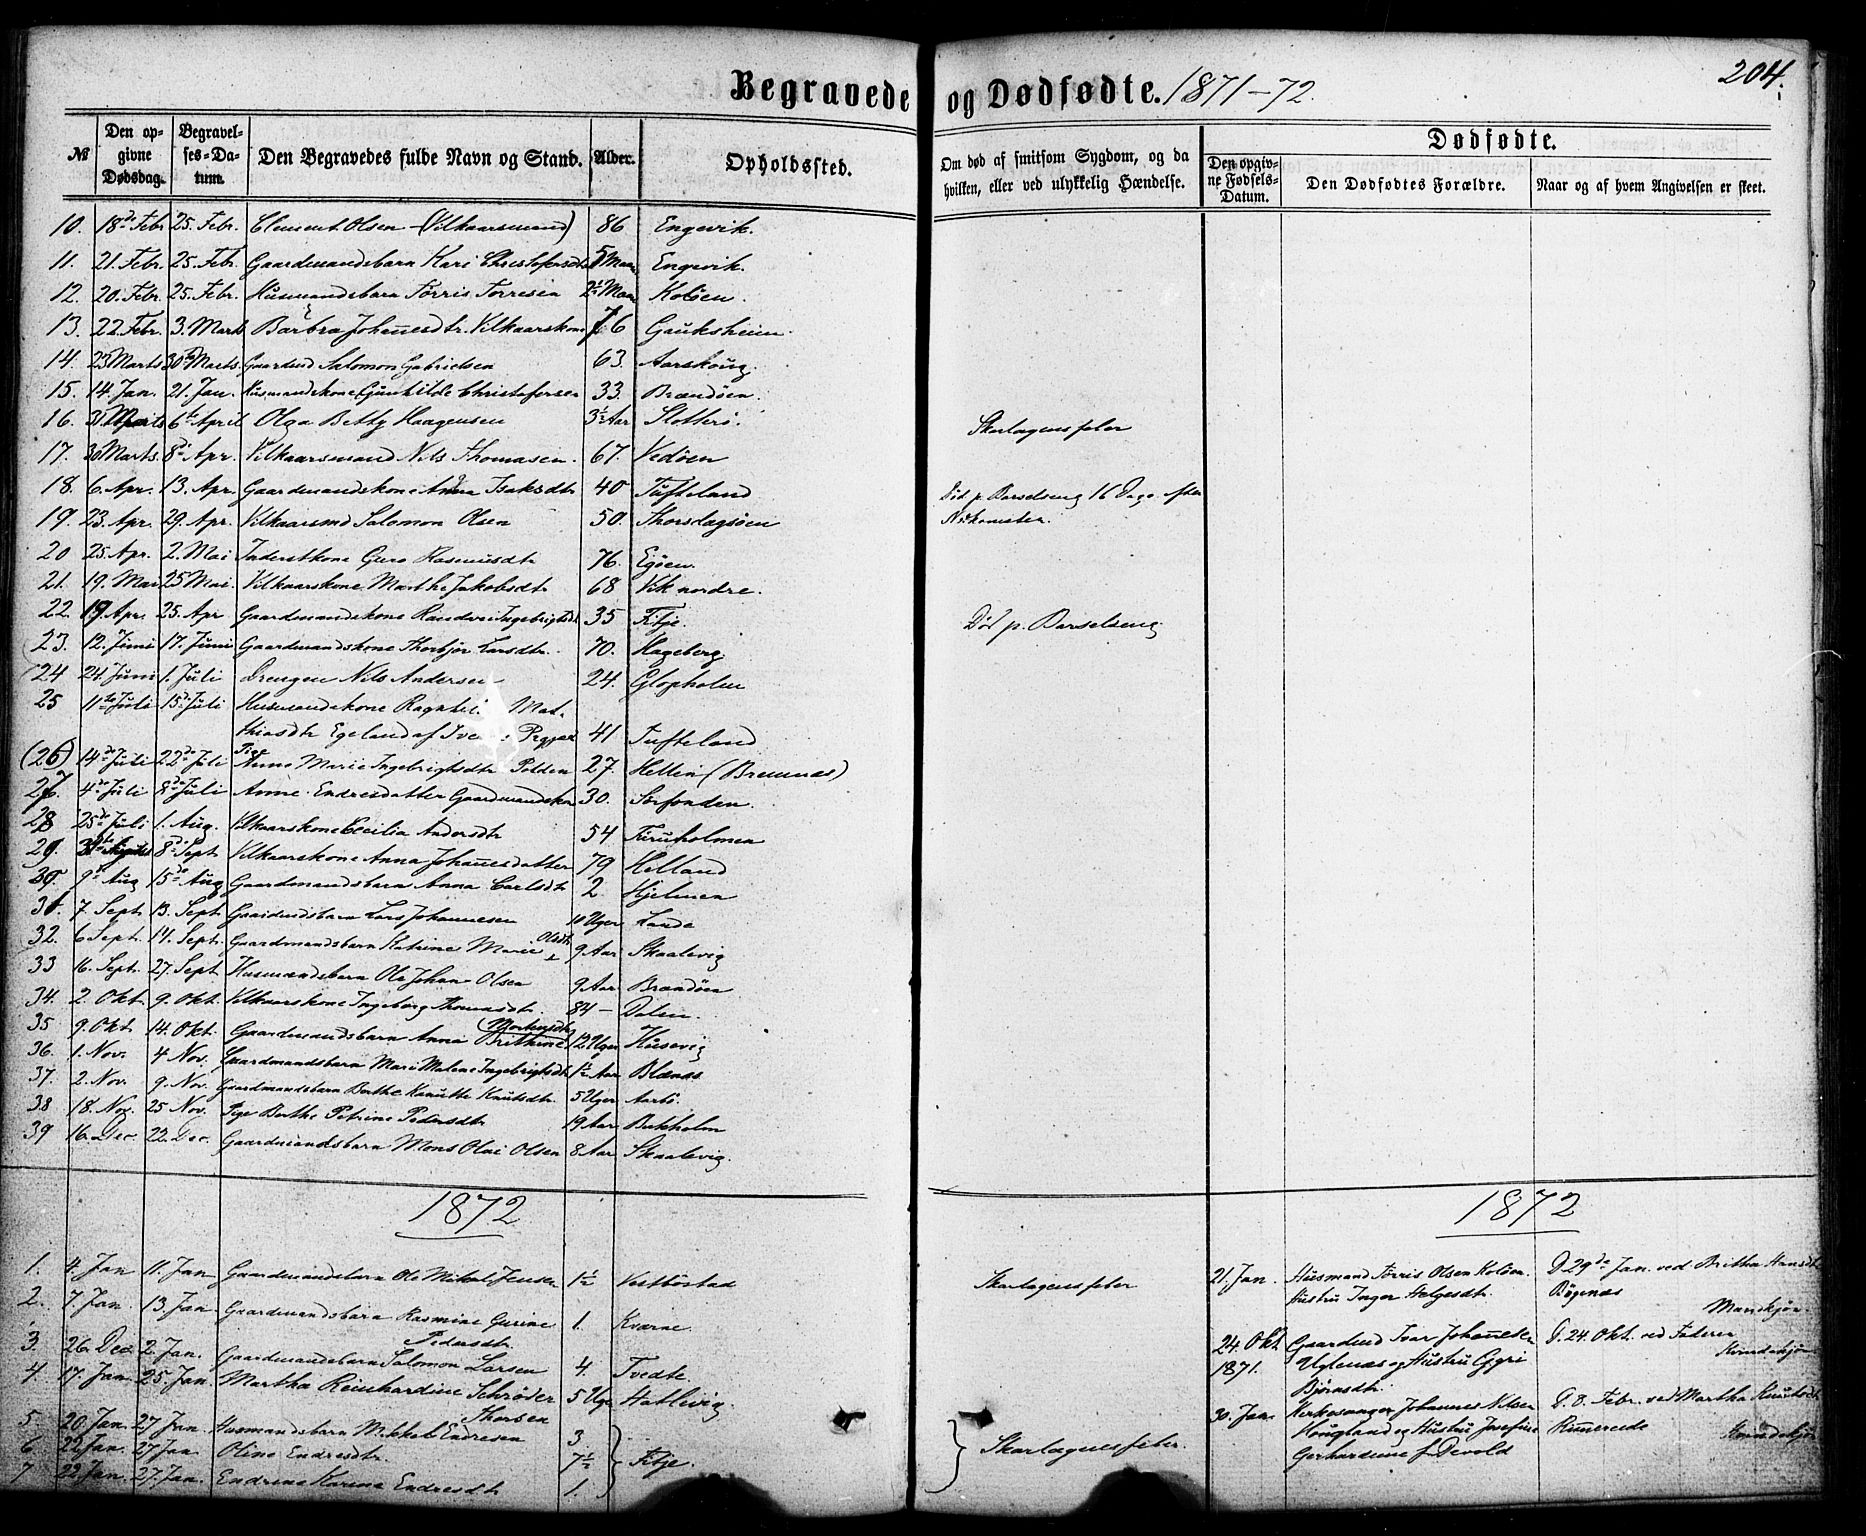 Begravede og Dødfødte. 1871-72.
204.
№ Den opgivne Dødsdag. Begravelses-Datum. Den Begravedes fulde Navn og Stand. Alder. Opholdssted.
Om død af smitsom Sygdom, og da hvilken, eller ved ulykkelig Hændelse.
Dødfødte.
Den opgivne Fødsels-Datum. Den Dødfødtes Forældre. Naar og af hvem Angivelsen er skeet.
10. 18de Febr. 25. Febr. Clement Olsen (Vilkaarsmand) 86 Engevik.
11. 21. Febr. 25. Febr. Gaardmandsbarn Kari Christofersdt. 5 Maan Engevik.
12. 20. Febr. 25. Febr. Husmandsbarn Torris Torresen 2½ Maan Koløen.
13. 22. Febr. 3. Marts Barbra Johannesdtr. Vilkaarskone 76 Gauksheim.
14. 23 Marts 30te Marts. Gaardmd Salomon Gabrielsen 63. Aarskoug.
15. 14. Jan. 21. Jan. Husmandskone Gunhilde Christofersen 33. Brandøen.
16. 31 Marts 6te April Olga Betty Haagensen 3½ Aar Slotterø. Skarlagensfeber
17. 30 Marts. 8de Apr. Vilkaarsmand Nils Thomasen. 67. Vedøen
18. 6. Apr. 13. Apr. Gaardmandskone Anna Isaksdtr 40 Tufteland Død p. Barselseng 16 Dage efter Nedkomsten.
19. 23. Apr. 29. Apr. Vilkaarsmd Salomon Olsen 50. Thorsdagsøen
20 25. Apr. 2. Mai Inderstkone Guro Rasmusdtr 76. Egøen.
21. 19. Mai 25 Mai. Vilkaarskone Marthe Jakobsdtr 68 Vik nordre.
22. 19. Apr. 25. Apr Gaardmandskone Randvei Ingebrigtsdt 35 Fitje. Død p. Barselseng
23. 12. Juni 17. Juni Gaardmandskone Thorbjør Larsdtr. 70. Hageberg
24 24. Juni 1. Juli Drengen Nils Andersen 24. Glopholm
25 11te Juli 15de Juli Husmandskone Ragnhil Mat-
thiasdtr Egeland af 41 Tufteland
(26) 14de Juli 22de Juli Pige Anne Marie Ingebrigtsdtr Polden 27. (Bremnæs)
27. 4de Juli 8de Juli Anne Endresdatter Gaardmandskon 30. Sørfonden.
28 25de Juli 1. Aug. Vilkaarskone Cecilia Andersdtr 54
29. 8de Sept Vilkaarskone Anna Johannesdatter 79 Helland
30. 9de Aug 15de Aug Gaardmandsbarn Anna Carlsdtr 2 Hjelmen
31. 7. Sept 13. Sept Gaardmdsbarn Lars Johannesen 10 Uger Lande
32. 6 Sept. 14. Sept. Gaardmandsbarn Katrine Marie Olsdtr 9 Aar Skaalevig
33 16. Sept. 27. Sept Husmandsbarn Ole Johan Olsen 9 Aar Brandøen
34. 2. Okt 9. Okt. Vilkaarskone Ingeborg Thomasdtr. 84 — Dalen.
35 9. Okt 14. Okt. Gaardmandsbarn Anna Brithine (Mortensdtr) 12 Uger Husevig
36. 1. Nov. 4 Nov. Gaardmandsbarn Mari Malene Ingebrigtsdt. 1½ Aar Blænæs
37. 2. Nov. 9. Nov. Gaardmandsbarn Berthe Knutsdtr. 5 Uger Aarbø.
38 18. Nov. 25 Nov. Pige Berthe Petrine Pedersdtr 19 Aar Bukholm
39 16. Dec. 22. Dec. Gaardmandsbarn Mons Olai Olsen 8 Aar Skaalevig.
1872
1872
1. 4. Jan 11. Jan Gaardmandsbarn Ole Mikal Jensen 1½ Vestbøstad Skarlagensfeber
2. 7. Jan. 13. Jan. Gaardmandsbarn Rasmine Gurine Pedersdtr. 1. Kværne.
3. 26. Dec. 2. Jan. Gaardmandsbarn Salomon Larsen 4. Tvedte.
4 17. Jan. 25. Jan. Martha Reinhardine Schrøder Thorsen 5 Uger Hatlevig.
5 20. Jan. 27. Jan. Husmandsbarn Mikkel Endresen 3.
6 22. Jan. 27 Jan. Oline Endresdtr. 7½ Fitje. Skarlagensfeber
7 22. Jan. 27. Jan. Endrine Karine Endresdtr 1.
21. Jan. Husmand Torris Olsen Koløen. D. 29de Jan. ved Britha Hansdt.
Hustru Inger Helgesdtr. Bøgenæs
Mandkjøn.
24. Okt. Gaardmd Ivar Johannesen D. 24. Okt. ved Faderen
1871. Uglenæs og Hustru Bjørnsdtr. Kvindekjøn
30. Jan. Kirkesanger Johannes Nilsen D. 8. Febr. ved Martha Knutsdt.
Hougland og Hustru Josefine Rimereide
Gerhardine f. Devold Kvindekjøn